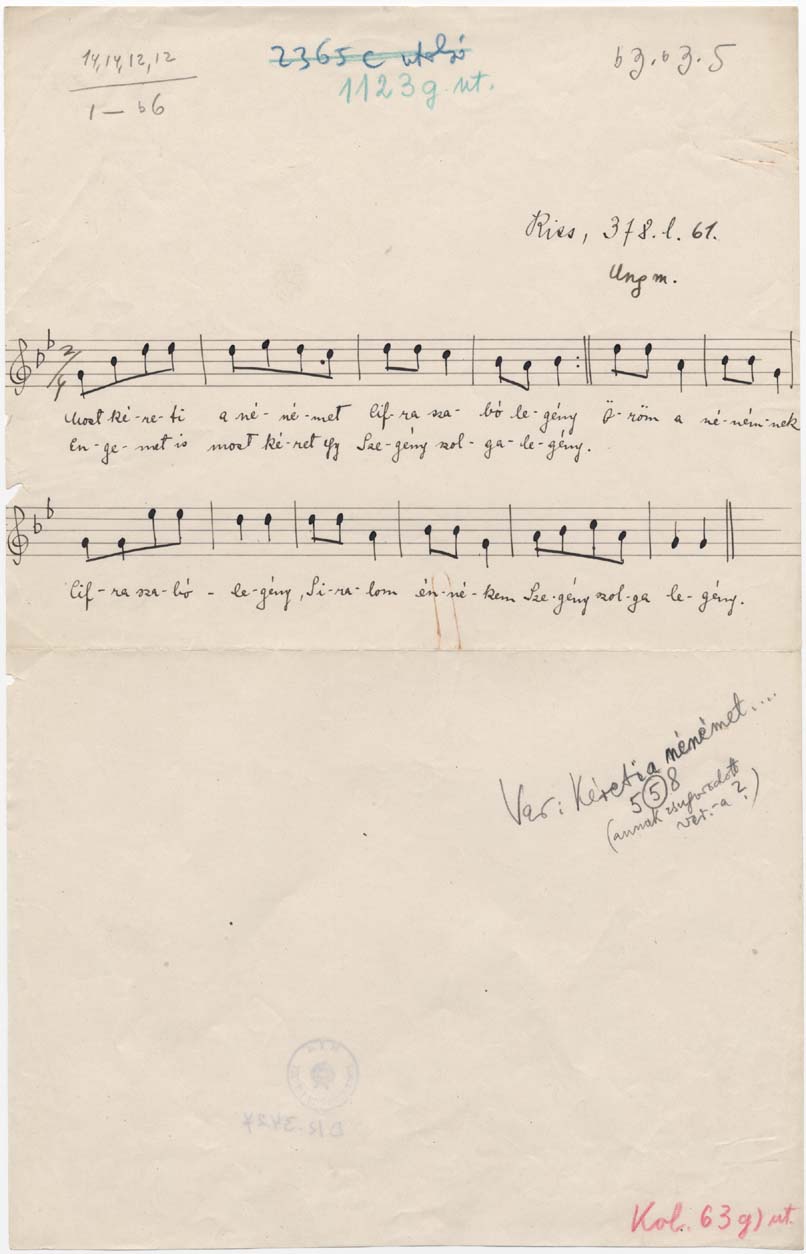 14,14,12,12
1 – b6
2365 c utolsó
1123 g. ut.
b3. b3. 5
Kiss, 378. l. 61.
Ung m.
2/4
Most ké-re-ti a né-né-met Cif-ra sza-bó le-gény Ö-röm a né-ném-nek
En-ge-met is most ké-ret egy Sze-gény szol-ga-le-gény.
Cif-ra sza-bó - le-gény, Si-ra-lom én-né-kem Sze-gény szol-ga le-gény.
Var: Kéreti a nénémet....
558
(annak zsugorodott
ver.-a?)
Kol. 63 g) ut.